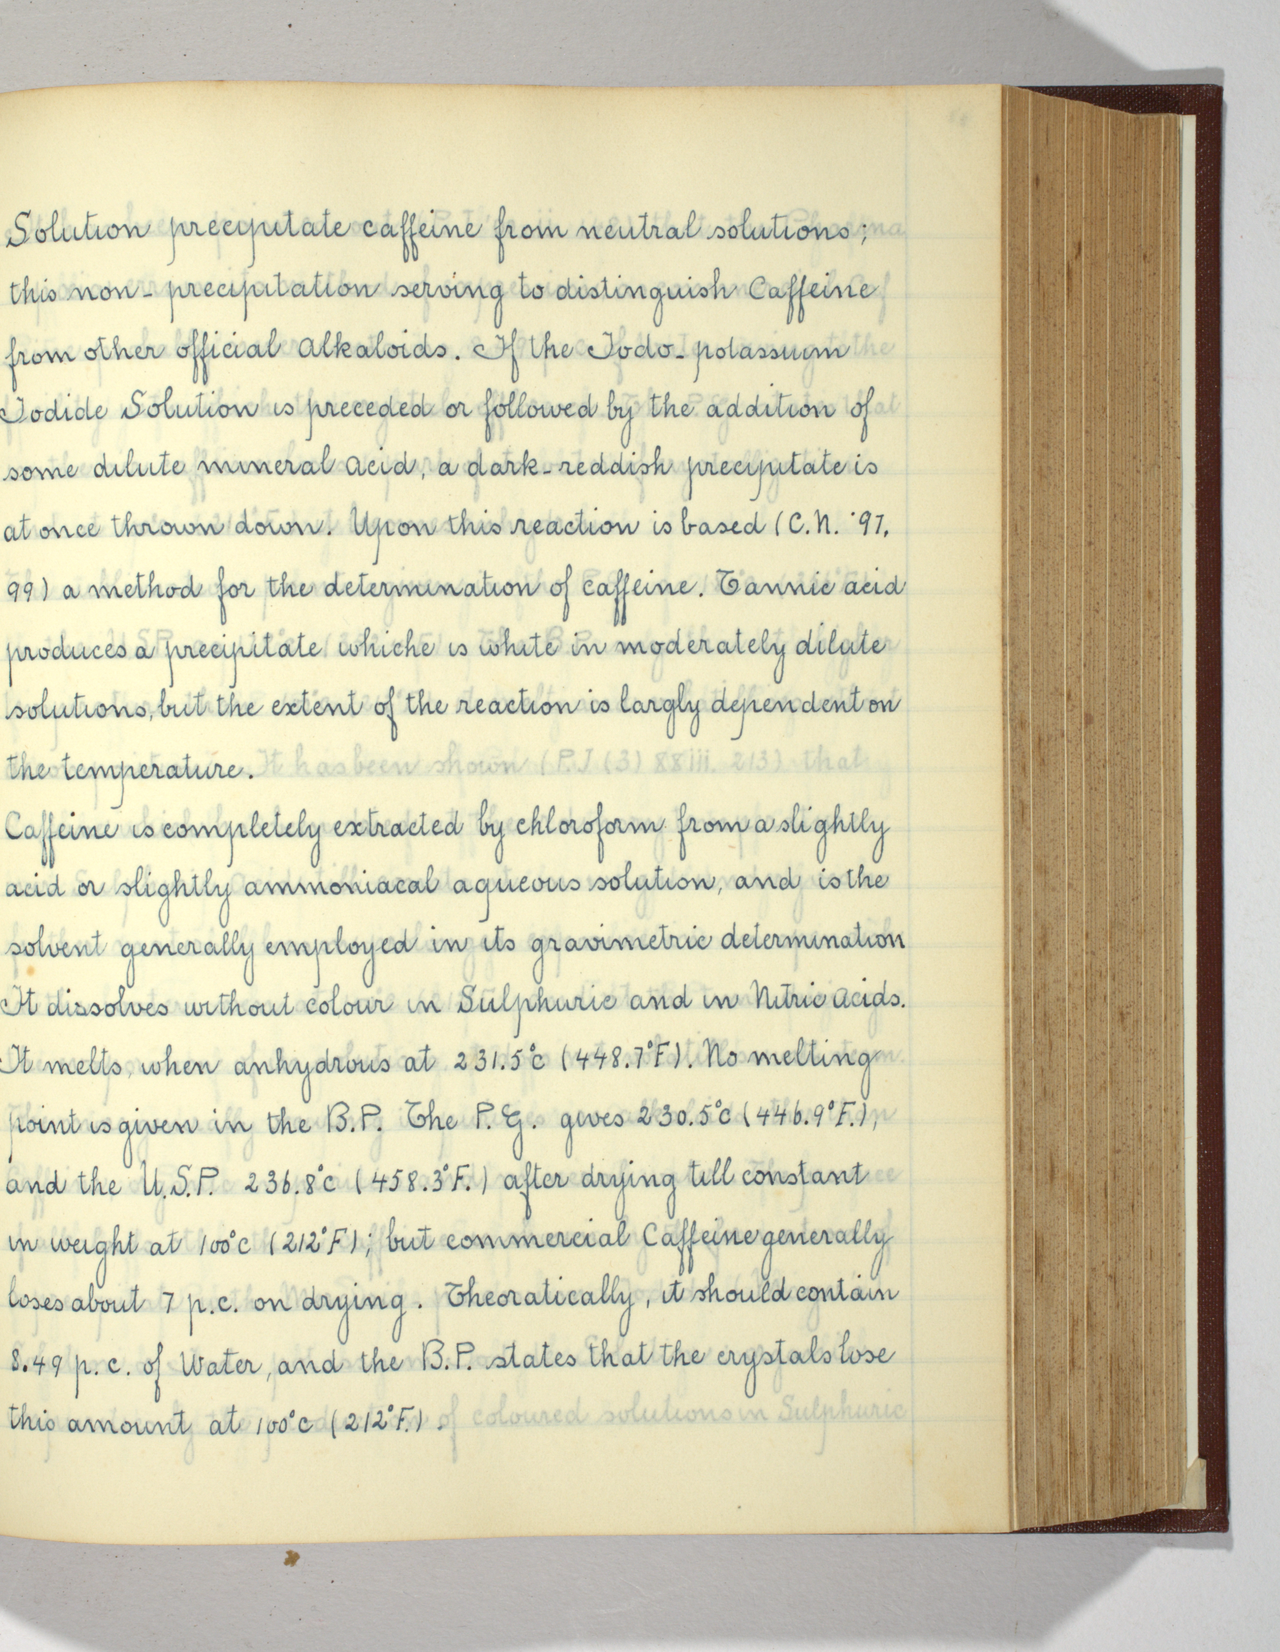 Solution precipitate caffeine from neutral solutions;
this non-precipitation serving to distinguish Caffeine
from other official Alkaloids. If the Iodo-potassium
Iodide Solution is preceded or followed by the addition of
some dilute mineral acid, a dark-reddish precipitate is
at once thrown down. Upon this reaction is based (C.N. '97,
99) a method for the determination of caffeine. Tannic acid
produces a precipitate whiche is white in moderately dilute
solutions, but the extent of the reaction is largly dependent on
the temperature.
Caffeine is completely extracted by chloroform from a slightly
acid or slightly ammoniacal aqueous solution, and is the
solvent generally employed in its gravimetric determination
It dissolves without colour in Sulphuric and in Nitric Acids.
It melts, when anhydrous at 231.5°c (448.7°F). No melting
point is given in the B.P. The P.G. gives 230.5°c (446.9°F.),
and the U.S.P. 236.8°c (458.3°F.) after drying till constant
in weight at 100°c (212°F); but commercial Caffeine generally
loses about 7 p.c. on drying. Theoratically, it should contain
8.49 p.c. of Water, and the B.P. states that the crystals lose
this amount at 100°c (212°F.).